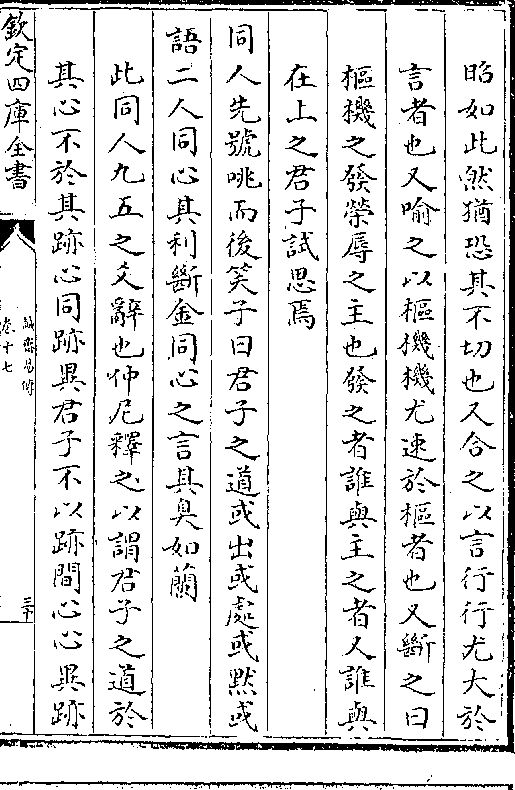 昭如此然猶恐其不切也又合之以言行行尤大於
言者也又喻之以樞機機尤速於樞者也又斷之曰
樞機之發榮辱之主也發之者誰與主之者又誰與
在上之君子試思焉
同人先號咷而後笑子曰君子之道或出或處或黙或
語二人同心其利斷金同心之言其臭如蘭
此同人九五之爻辭也仲尼釋之以謂君子之道於
其心不於其跡心同跡異君子不以跡間心心異跡
欽定四庫全書
誠齋易傳
卷十七